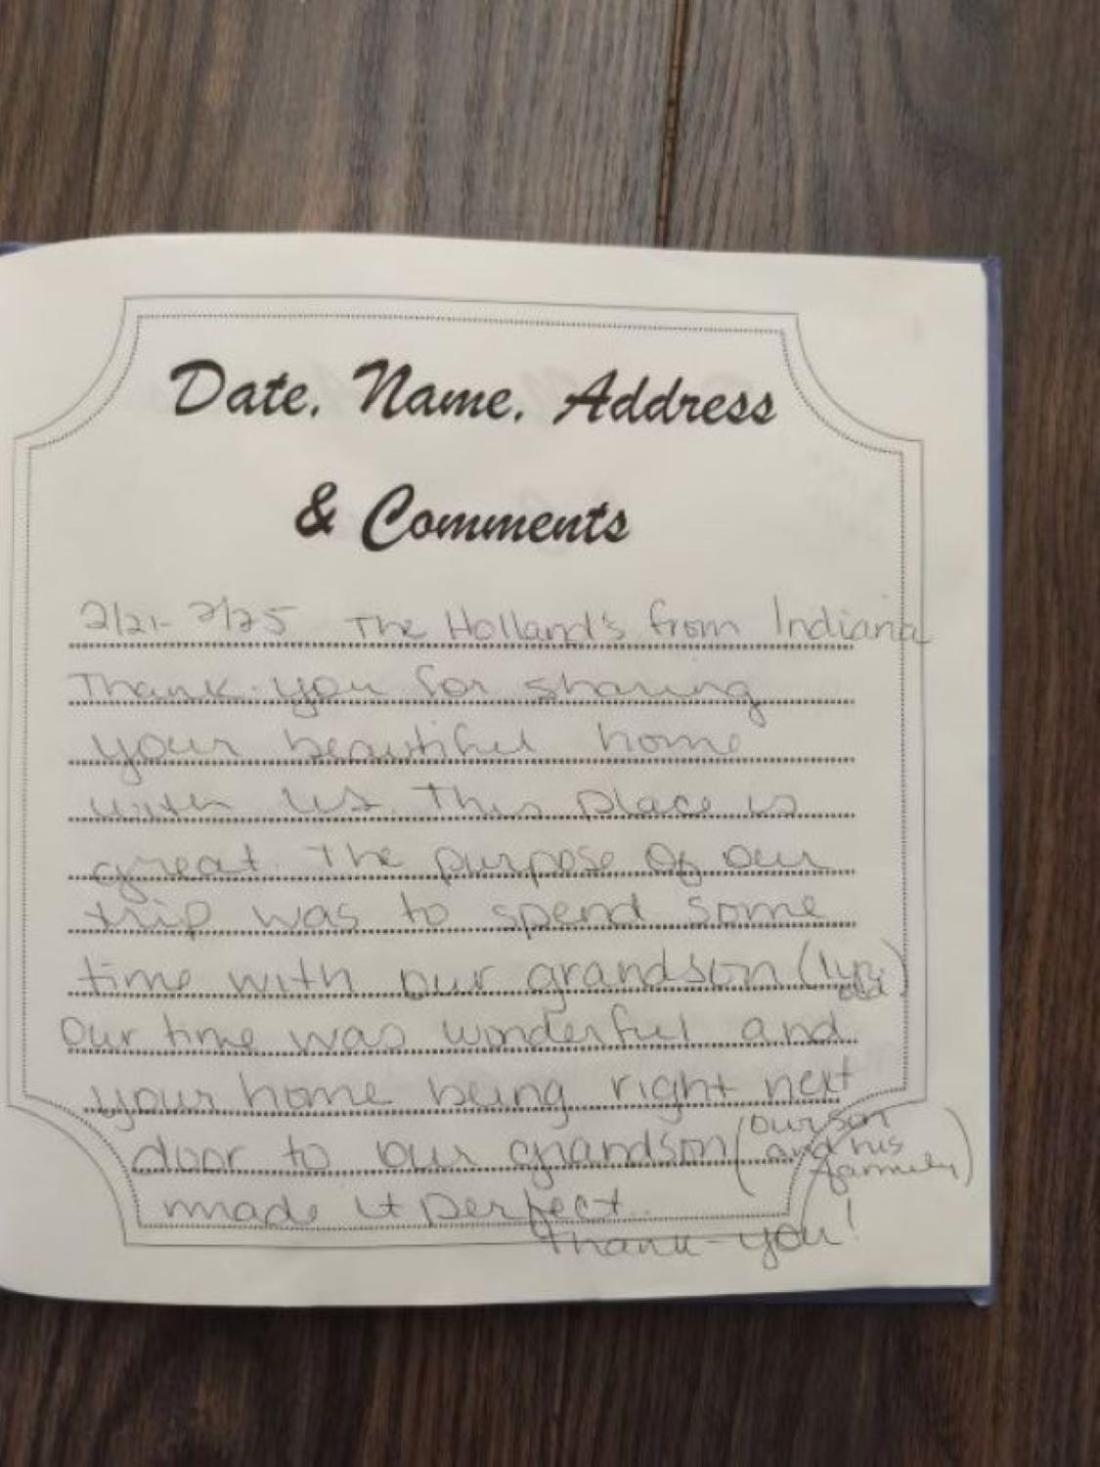 Date, Name, Address
& Comments
2/21-2/25 The Holland's from Indiana
Thank-you for sharing
your beautiful home
with us. This place is
great. The purpose of our
trip was to spend some
time with our grandson (1yr.
old)
Our time was wonderful and
your home being right next
door to our grandson (our son
and his
family)
made it perfect.
Thank-you!